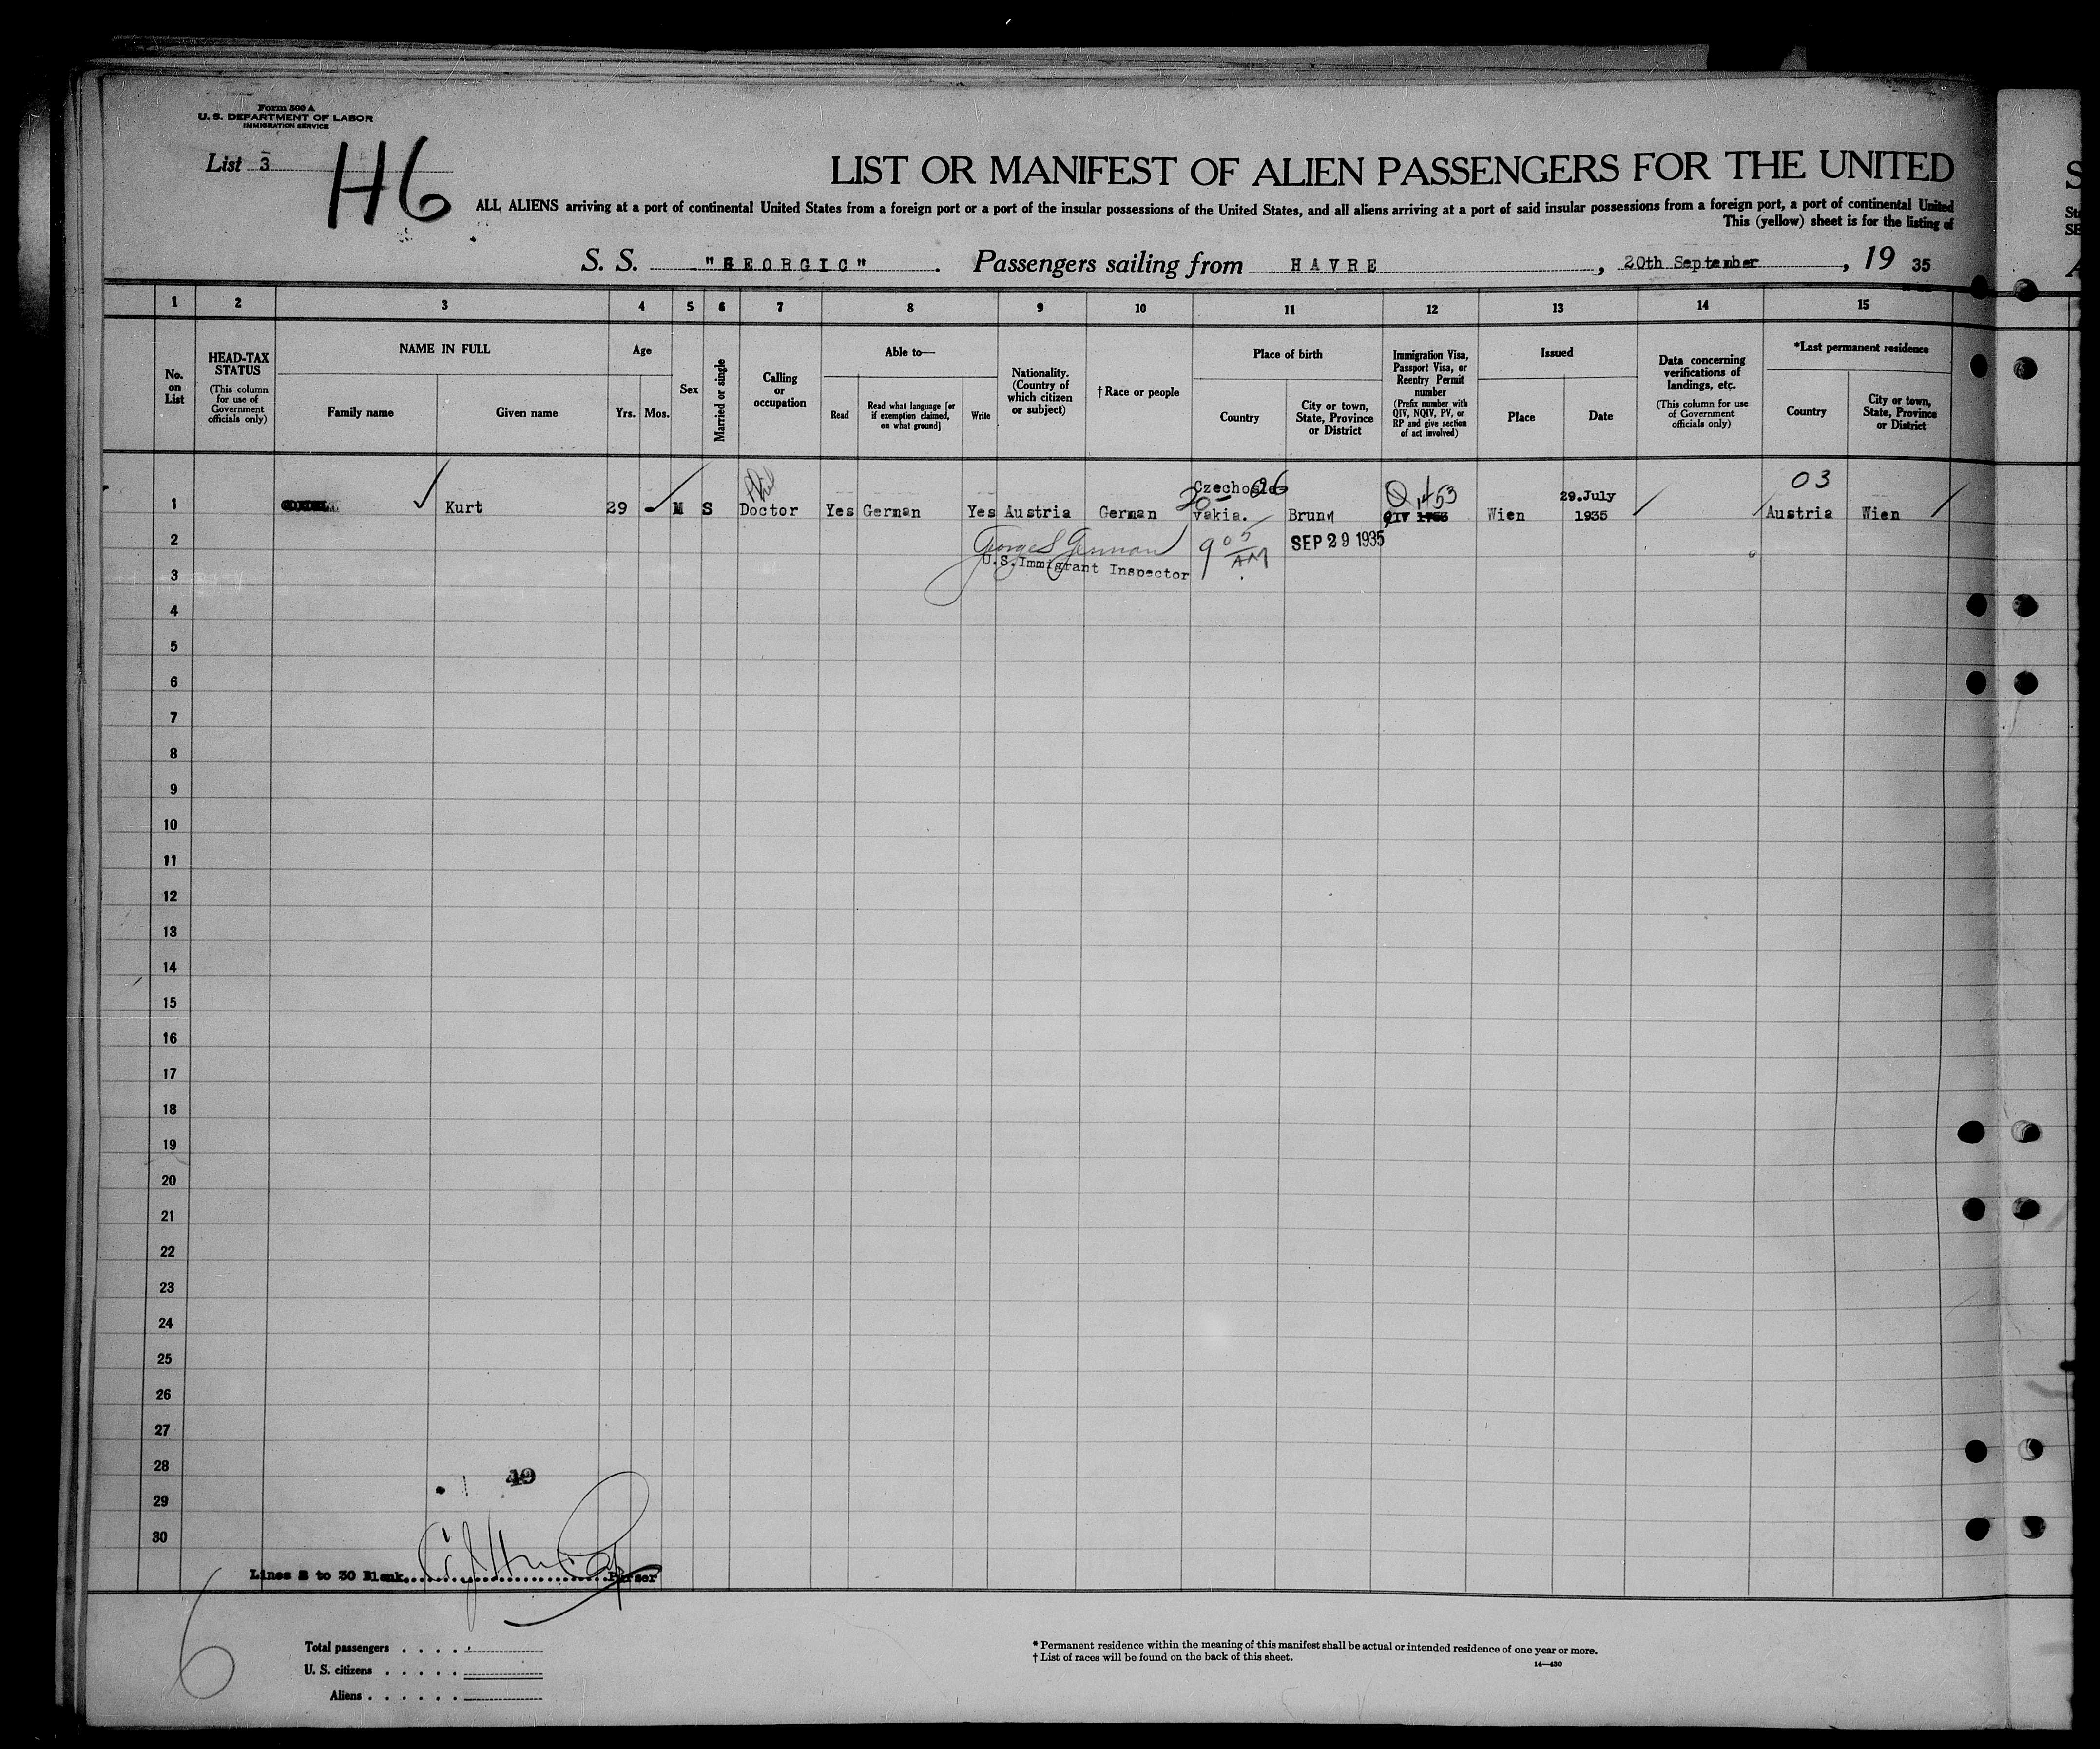 Form 500 A
U. S. DEPARTMENT OF LABOR
IMMIGRATION SERVICE
List 3
H6
LIST OR MANIFEST OF ALIEN PASSENGERS FOR THE UNITED
ALL ALIENS arriving at a port of continental United States from a foreign port or a port of the insular possessions of the United States, and all aliens arriving at a port of said insular possessions from a foreign port, a port of continental United
This (yellow) sheet is for the listing of
S. S. "GEORGIC". Passengers sailing from HAVRE, 20th September, 19 35
1 2 3 4 5 6 7 8 9 10 11 12 13 14 15
No. on List
HEAD-TAX STATUS
(This column for use of Government officials only)
NAME IN FULL
Family name
Given name
Age
Yrs.
Mos.
Sex
Married or single
Calling or occupation
Able to—
Read
Read what language [or if exemption claimed, on what ground]
Write
Nationality. (Country of which citizen or subject)
†Race or people
Place of birth
Country
City or town, State, Province or District
Immigration Visa, Passport Visa, or Reentry Permit number
(Prefix number with QIV, NQIV, PV, or RP and give section of act involved)
Issued
Place
Date
Data concerning verifications of landings, etc.
(This column for use of Government officials only)
*Last permanent residence
Country
City or town, State, Province or District
Czechoslo- 03
1 Kurt 29 M S Doctor Yes German Yes Austria German vakia. Brunn QIV Wien 29.July 1935 Austria Wien
Q 1453
2 George S German 9 05 AM SEP 29 1935
U.S. Immigrant Inspector
3
4
5
6
7
8
9
10
11
12
13
14
15
16
17
18
19
20
21
22
23
24
25
26
27
28
29
30
Lines 2 to 30 Blank. Purser
6
Total passengers
U. S. citizens
Aliens
* Permanent residence within the meaning of this manifest shall be actual or intended residence of one year or more.
† List of races will be found on the back of this sheet.
14—430